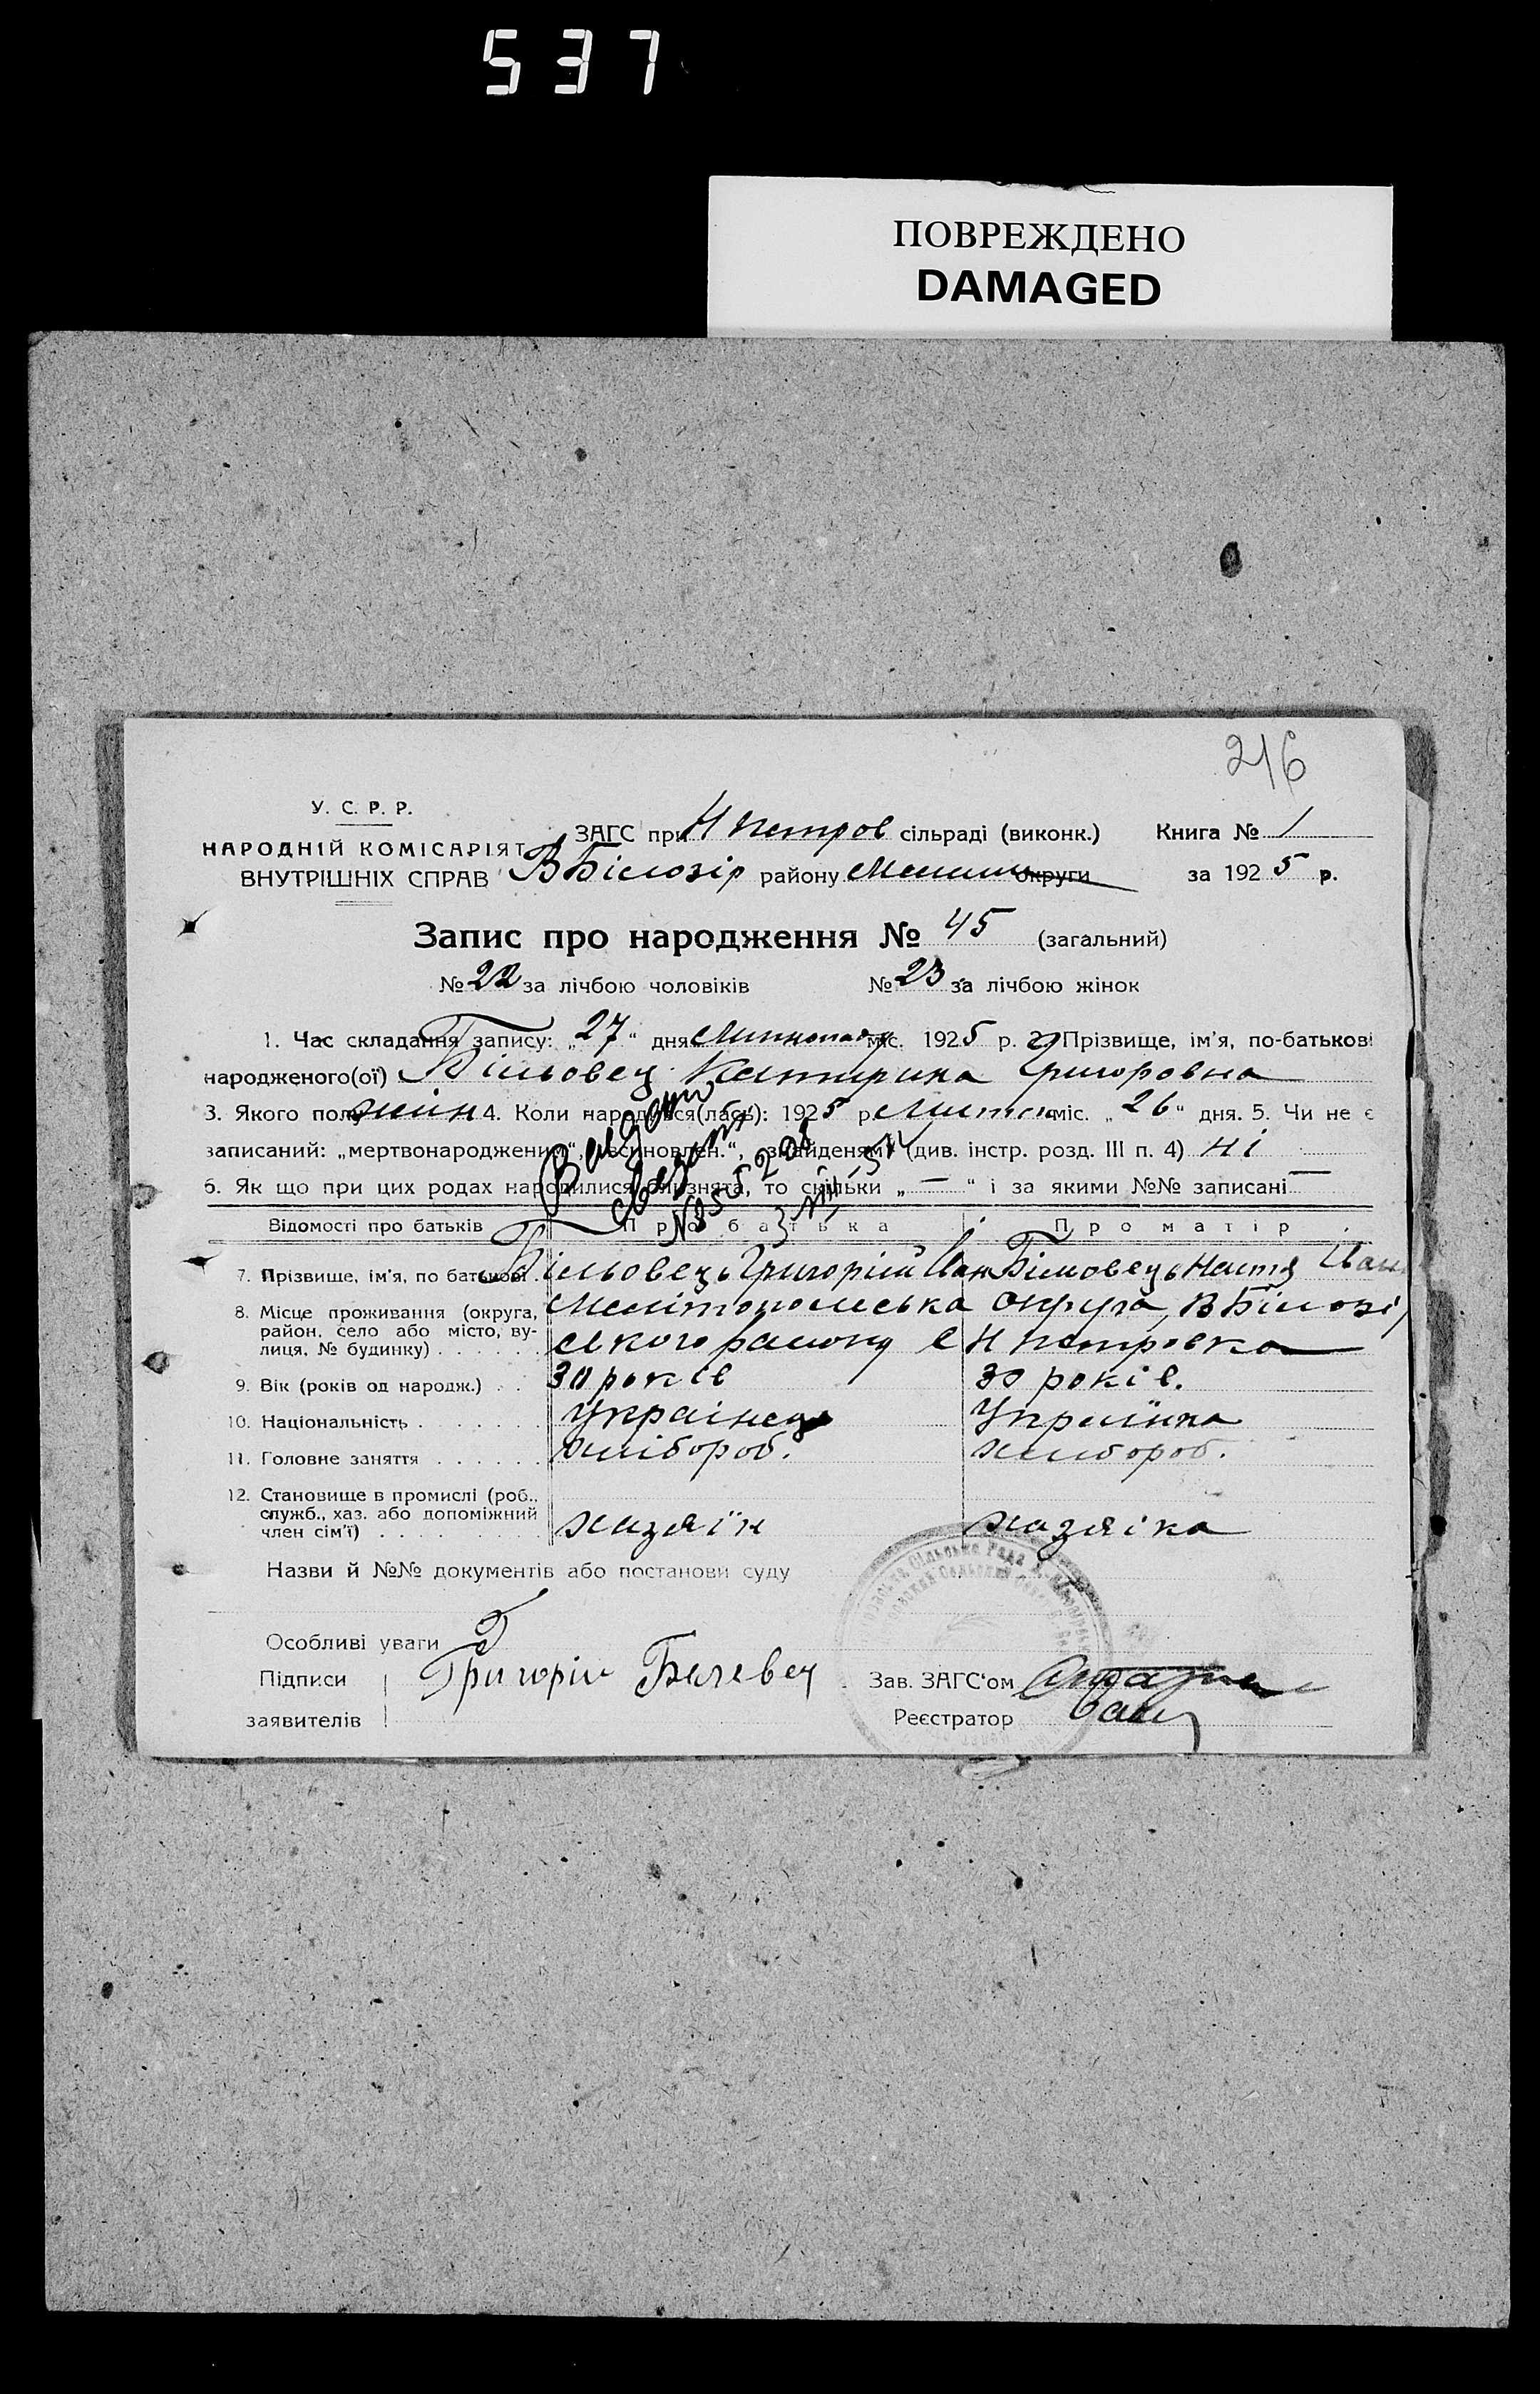 537
ПОВРЕЖДЕНО
DAMAGED
216
У. С. Р. Р.
НАРОДНІЙ КОМІСАРІЯТ
ВНУТРІШНІХ СПРАВ
ЗАГС при Н Петров сільраді (виконк.) Книга № 1
В Білозір району Мелит округи за 1925 р.
Запис про народження № 45 (загальний)
№ 22 за лічбою чоловіків № 23 за лічбою жінок
1. Час складання запису: „27“ дня Листопада міс. 1925 р. 2. Прізвище, ім'я, по-батькові
народженого(ої) Більовец Катирина Григоровна
3. Якого полу жін 4. Коли народився(лась): 1925 р. Листоп міс. „26“ дня. 5. Чи не є
записаний: „мертвонародженим“, „всиновлен.“, „знайденям“ (див. інстр. розд. III п. 4) ні
6. Як що при цих родах народилися близнята, то скільки „—“ і за якими №№ записані —
Видано
Відомості про батьків Про батька Про матір
7. Прізвище, ім'я, по батькові Більовець Григорій Іван Більовець Настя Іван
8. Місце проживання (округа, район, село або місто, вулиця, № будинку) Мелітопольська округа, В Білозі
ського району с Н Петровка
9. Вік (років од народж.) 30 років 30 років.
10. Національність Українець Українка
11. Головне заняття хлібороб. хлібороб.
12. Становище в промислі (роб., служб., хаз. або допоміжний член сім'ї) хазяїн хазяіка
Назви й №№ документів або постанови суду
Особливі уваги
Підписи Григорій Белевец Зав. ЗАГС'ом
заявителів Реєстратор